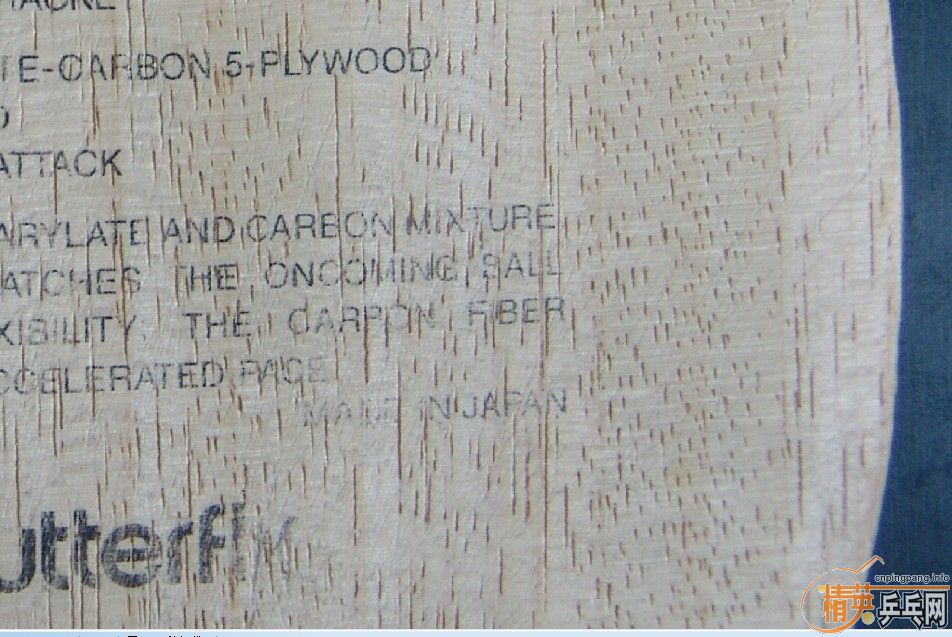 TE-CARBON 5-PLYWOOD
ATTACK
ARYLATE AND CARBON MIXTURE
ATCHES THE ONCOMING BALL
XIBILITY. THE CARBON FIBER
CCELERATED PACE
MADE IN JAPAN
utterfly
cnpingpang.info
精英乒乓网